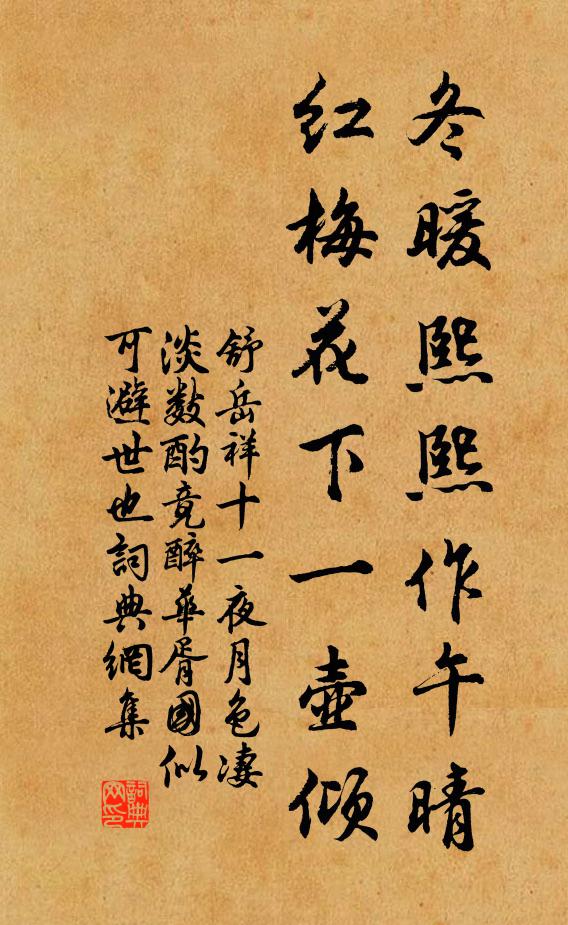 冬暖熙熙作午晴
红梅花下一壶倾
舒岳祥十一夜月色凄
淡数酌竟醉华胥國似
可避世也詞典網集
詞典网印